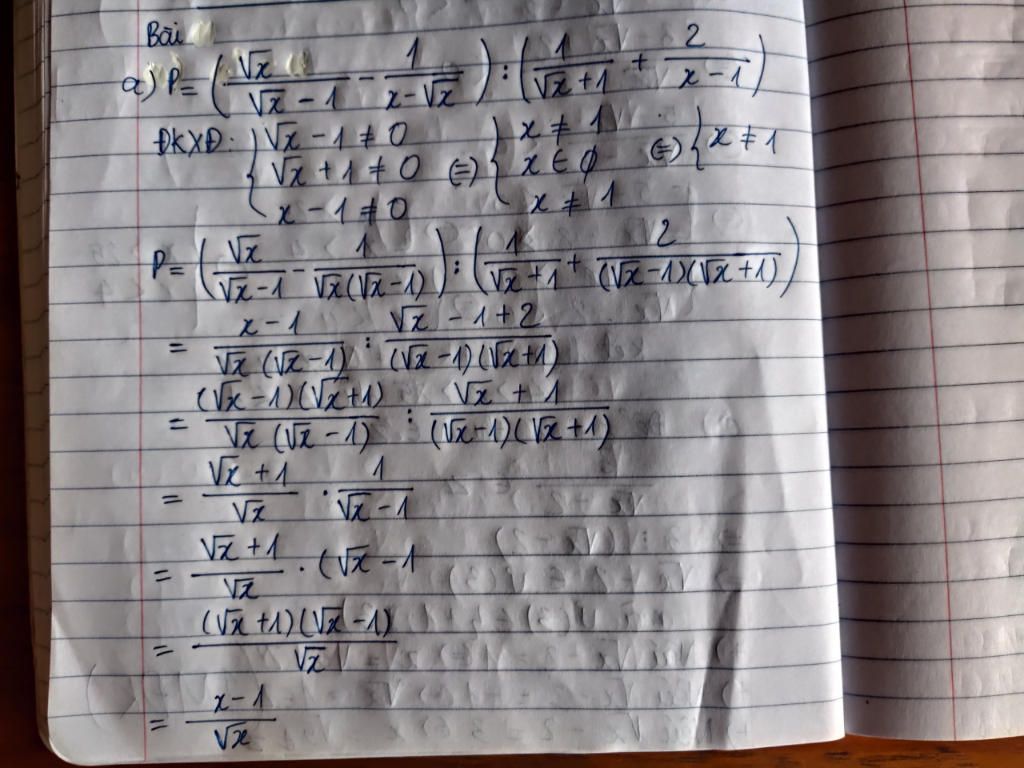 Bài
a) P = (√x/(√x - 1) - 1/(x-√x)) : (1/(√x+1) + 2/(x-1))
ĐKXĐ: { √x - 1 ≠ 0 ; √x + 1 ≠ 0 ; x - 1 ≠ 0 (=) { x ≠ 1 ; x ∈ ∅ ; x ≠ 1 (=) { x ≠ 1
P = (√x/(√x-1) - 1/(√x(√x-1))) : (1/(√x+1) + 2/((√x-1)(√x+1)))
= (x-1)/(√x(√x-1)) : (√x - 1 + 2)/((√x-1)(√x+1))
= ((√x-1)(√x+1))/(√x(√x-1)) : (√x + 1)/((√x-1)(√x+1))
= (√x+1)/√x · 1/(√x-1)
= (√x+1)/√x · (√x - 1
= ((√x+1)(√x-1))/√x
= (x-1)/√x